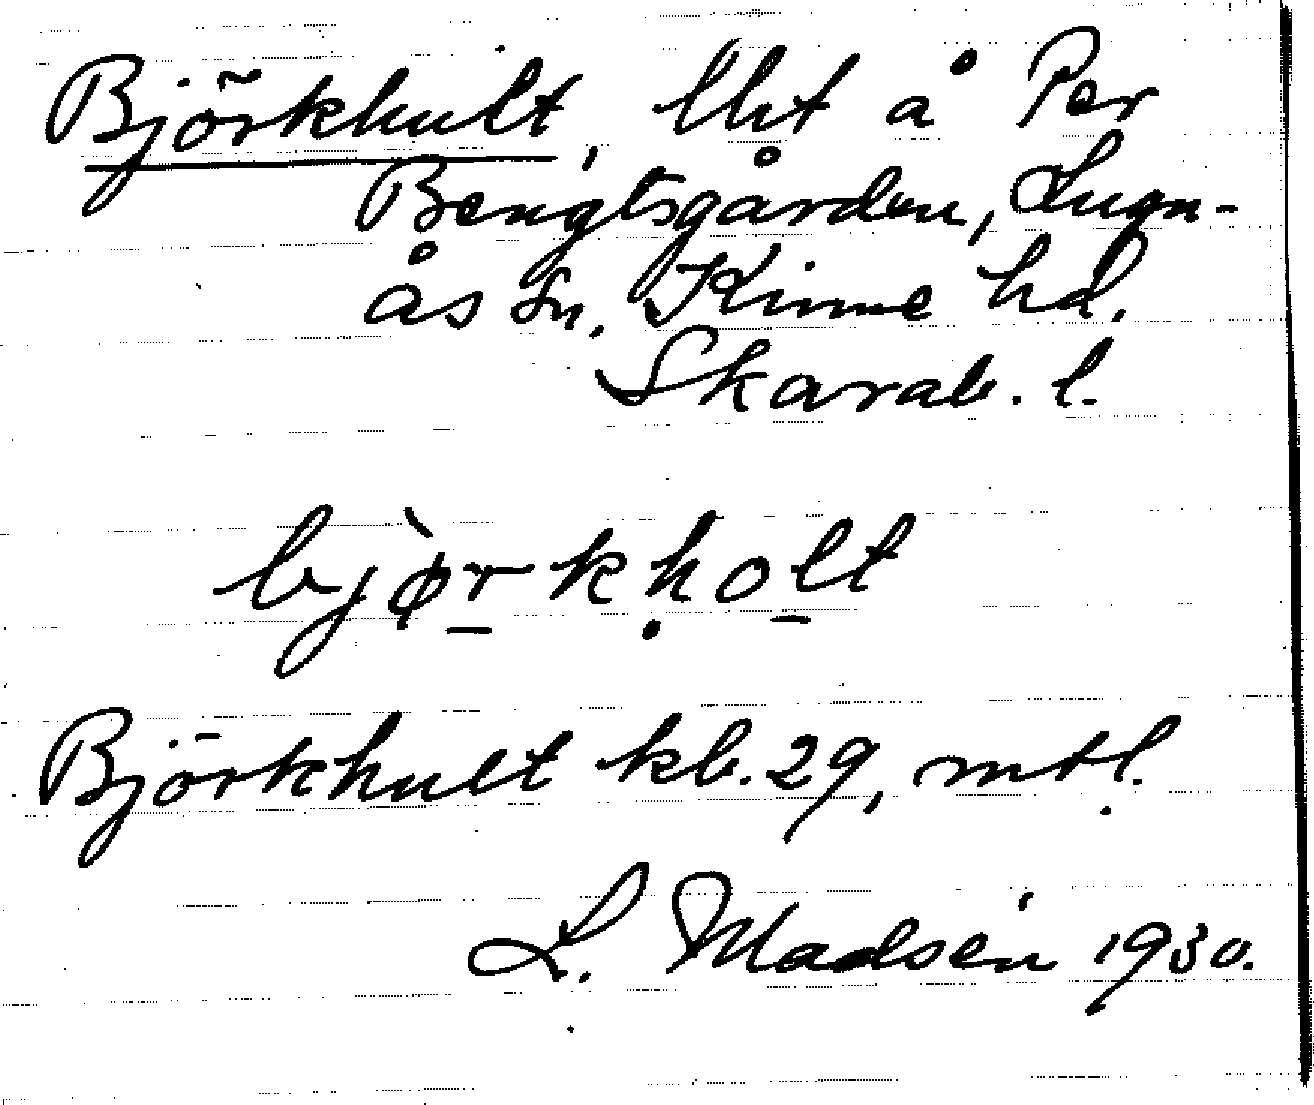 Björkhult, lht å Per
Bengtsgården, Lugn-
ås sn. Kinne hd.
Skarab. l.
bjø̀rkḥolt
Björkhult kb. 29, mtl.
L. Madsén 1930.